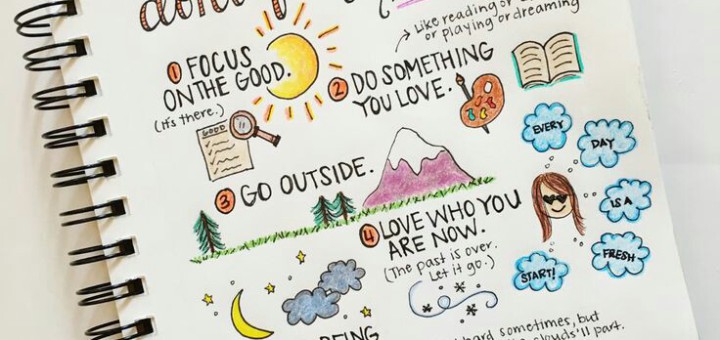 Like reading or
or playing or dreaming
① FOCUS
ON THE GOOD.
(it's there.)
GOOD
② DO SOMETHING
YOU LOVE.
③ GO OUTSIDE.
④ LOVE WHO YOU
ARE NOW.
(The past is over.
Let it go.)
EVERY
DAY
IS A
FRESH
START!
BEING
hard sometimes, but
clouds'll part.